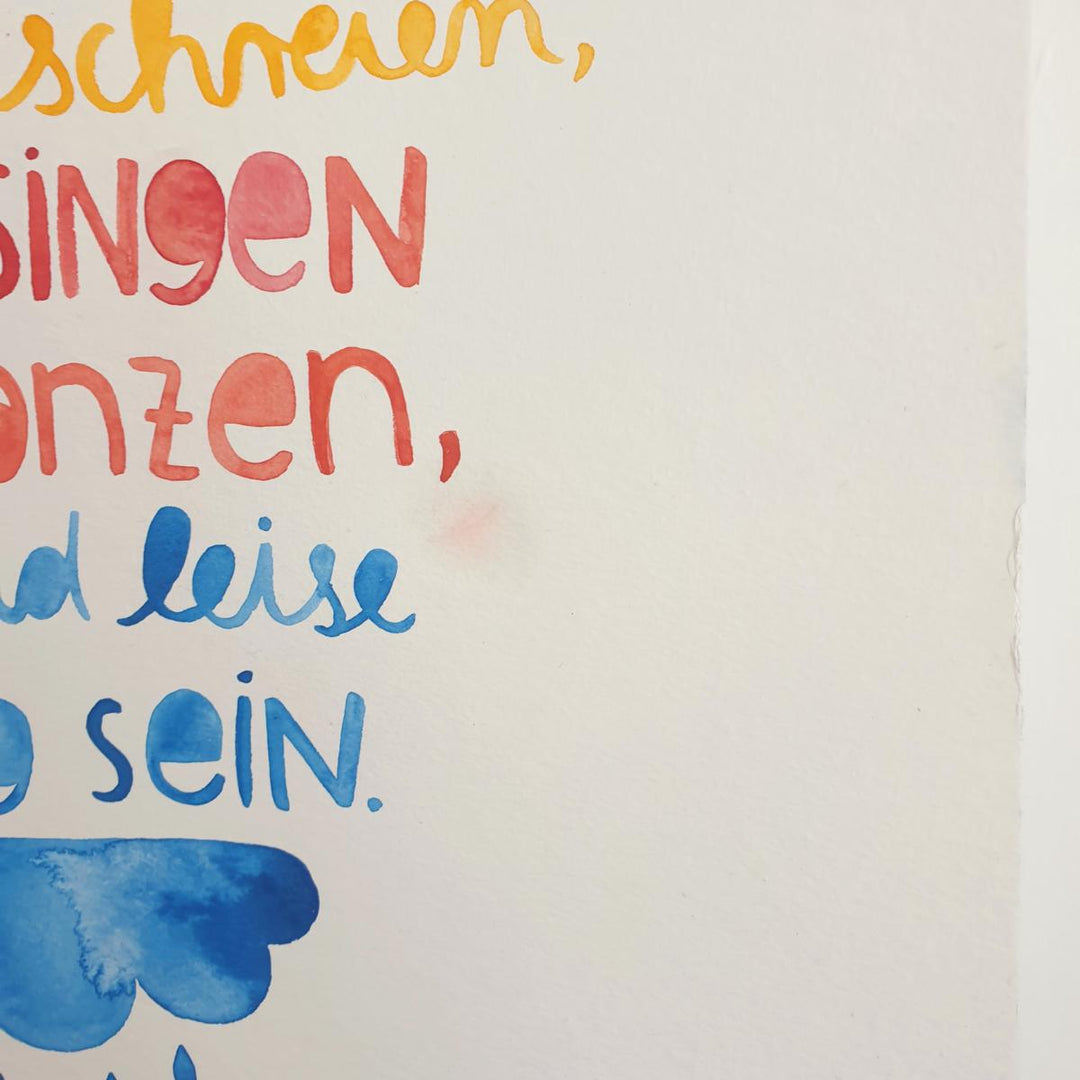 schreien,
singen
anzen,
nd leise
g sein.